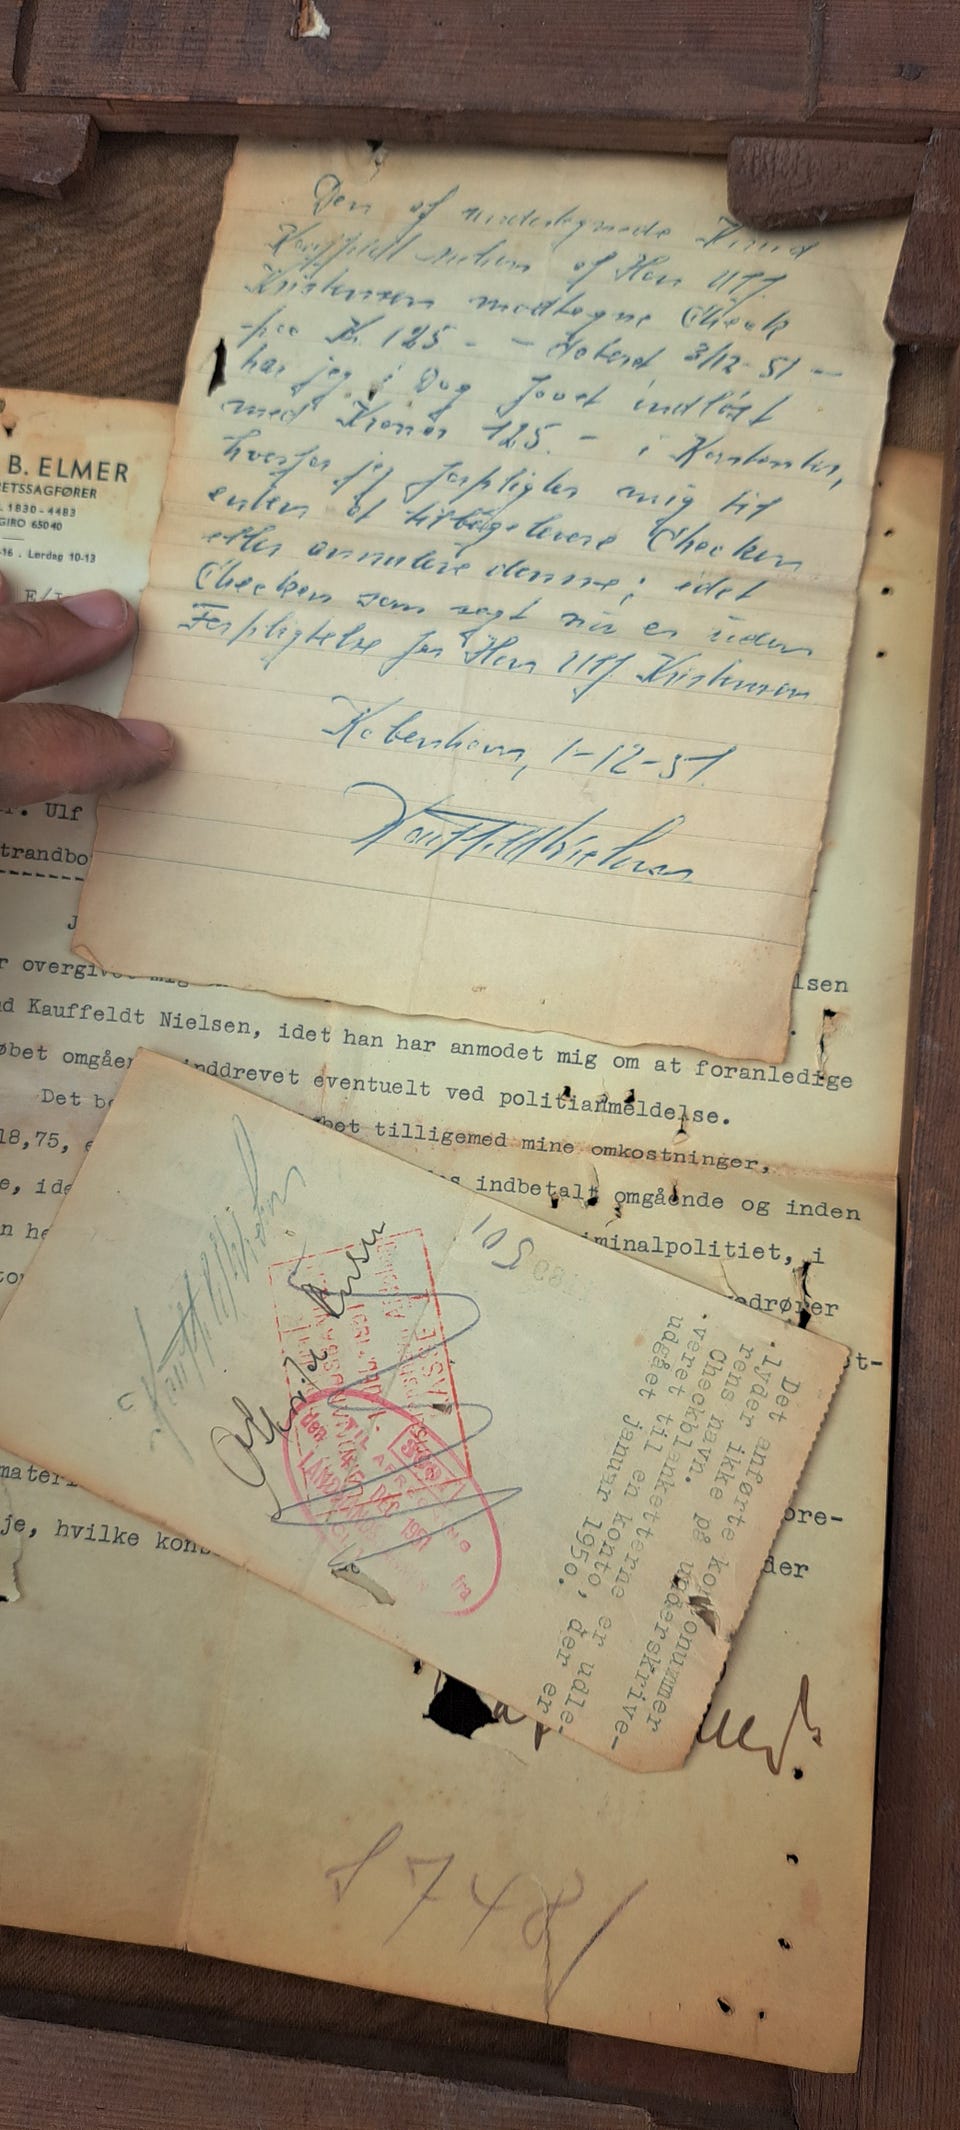 Den af undertegnede Knud
Kauffeldt Nielsen af Herr Ulf
Kristensen modtagne Check
paa Kr. 125 - - dateret 3/12-51 -
har jeg i Dag Jovet indløst
med Kroner 125. - i Kontanter,
hvorfor jeg forpligter mig til
enten at tilbagelevere Checken
eller annulere denne; idet
Checken som sagt nu er uden
Forpligtelse for Herr Ulf Kristensen
København, 1-12-51.
Kauffeldt Nielsen
B. ELMER
RETSSAGFØRER
1830-4483
GIRO 65040
-16 . Lørdag 10-13
E/I
r. Ulf
trandbo
J
r overgivet mig
lsen
d Kauffeldt Nielsen, idet han har anmodet mig om at foranledige
øbet omgående inddrevet eventuelt ved politianmeldelse.
Det be
bet tilligemed mine omkostninger,
18,75, e
s indbetalt omgående og inden
e, ide
iminalpolitiet, i
n he
edrører
to
t-
Kauffeldt Nielsen
501
DEC 1951
LANDMANDS
Det anførte kontonummer
lyder ikke på underskrive-
rens navn.
Checkblanketterne er udle-
veret til en konto, der er
udgået januar 1950.
materi
ore-
je, hvilke kons
der
8748